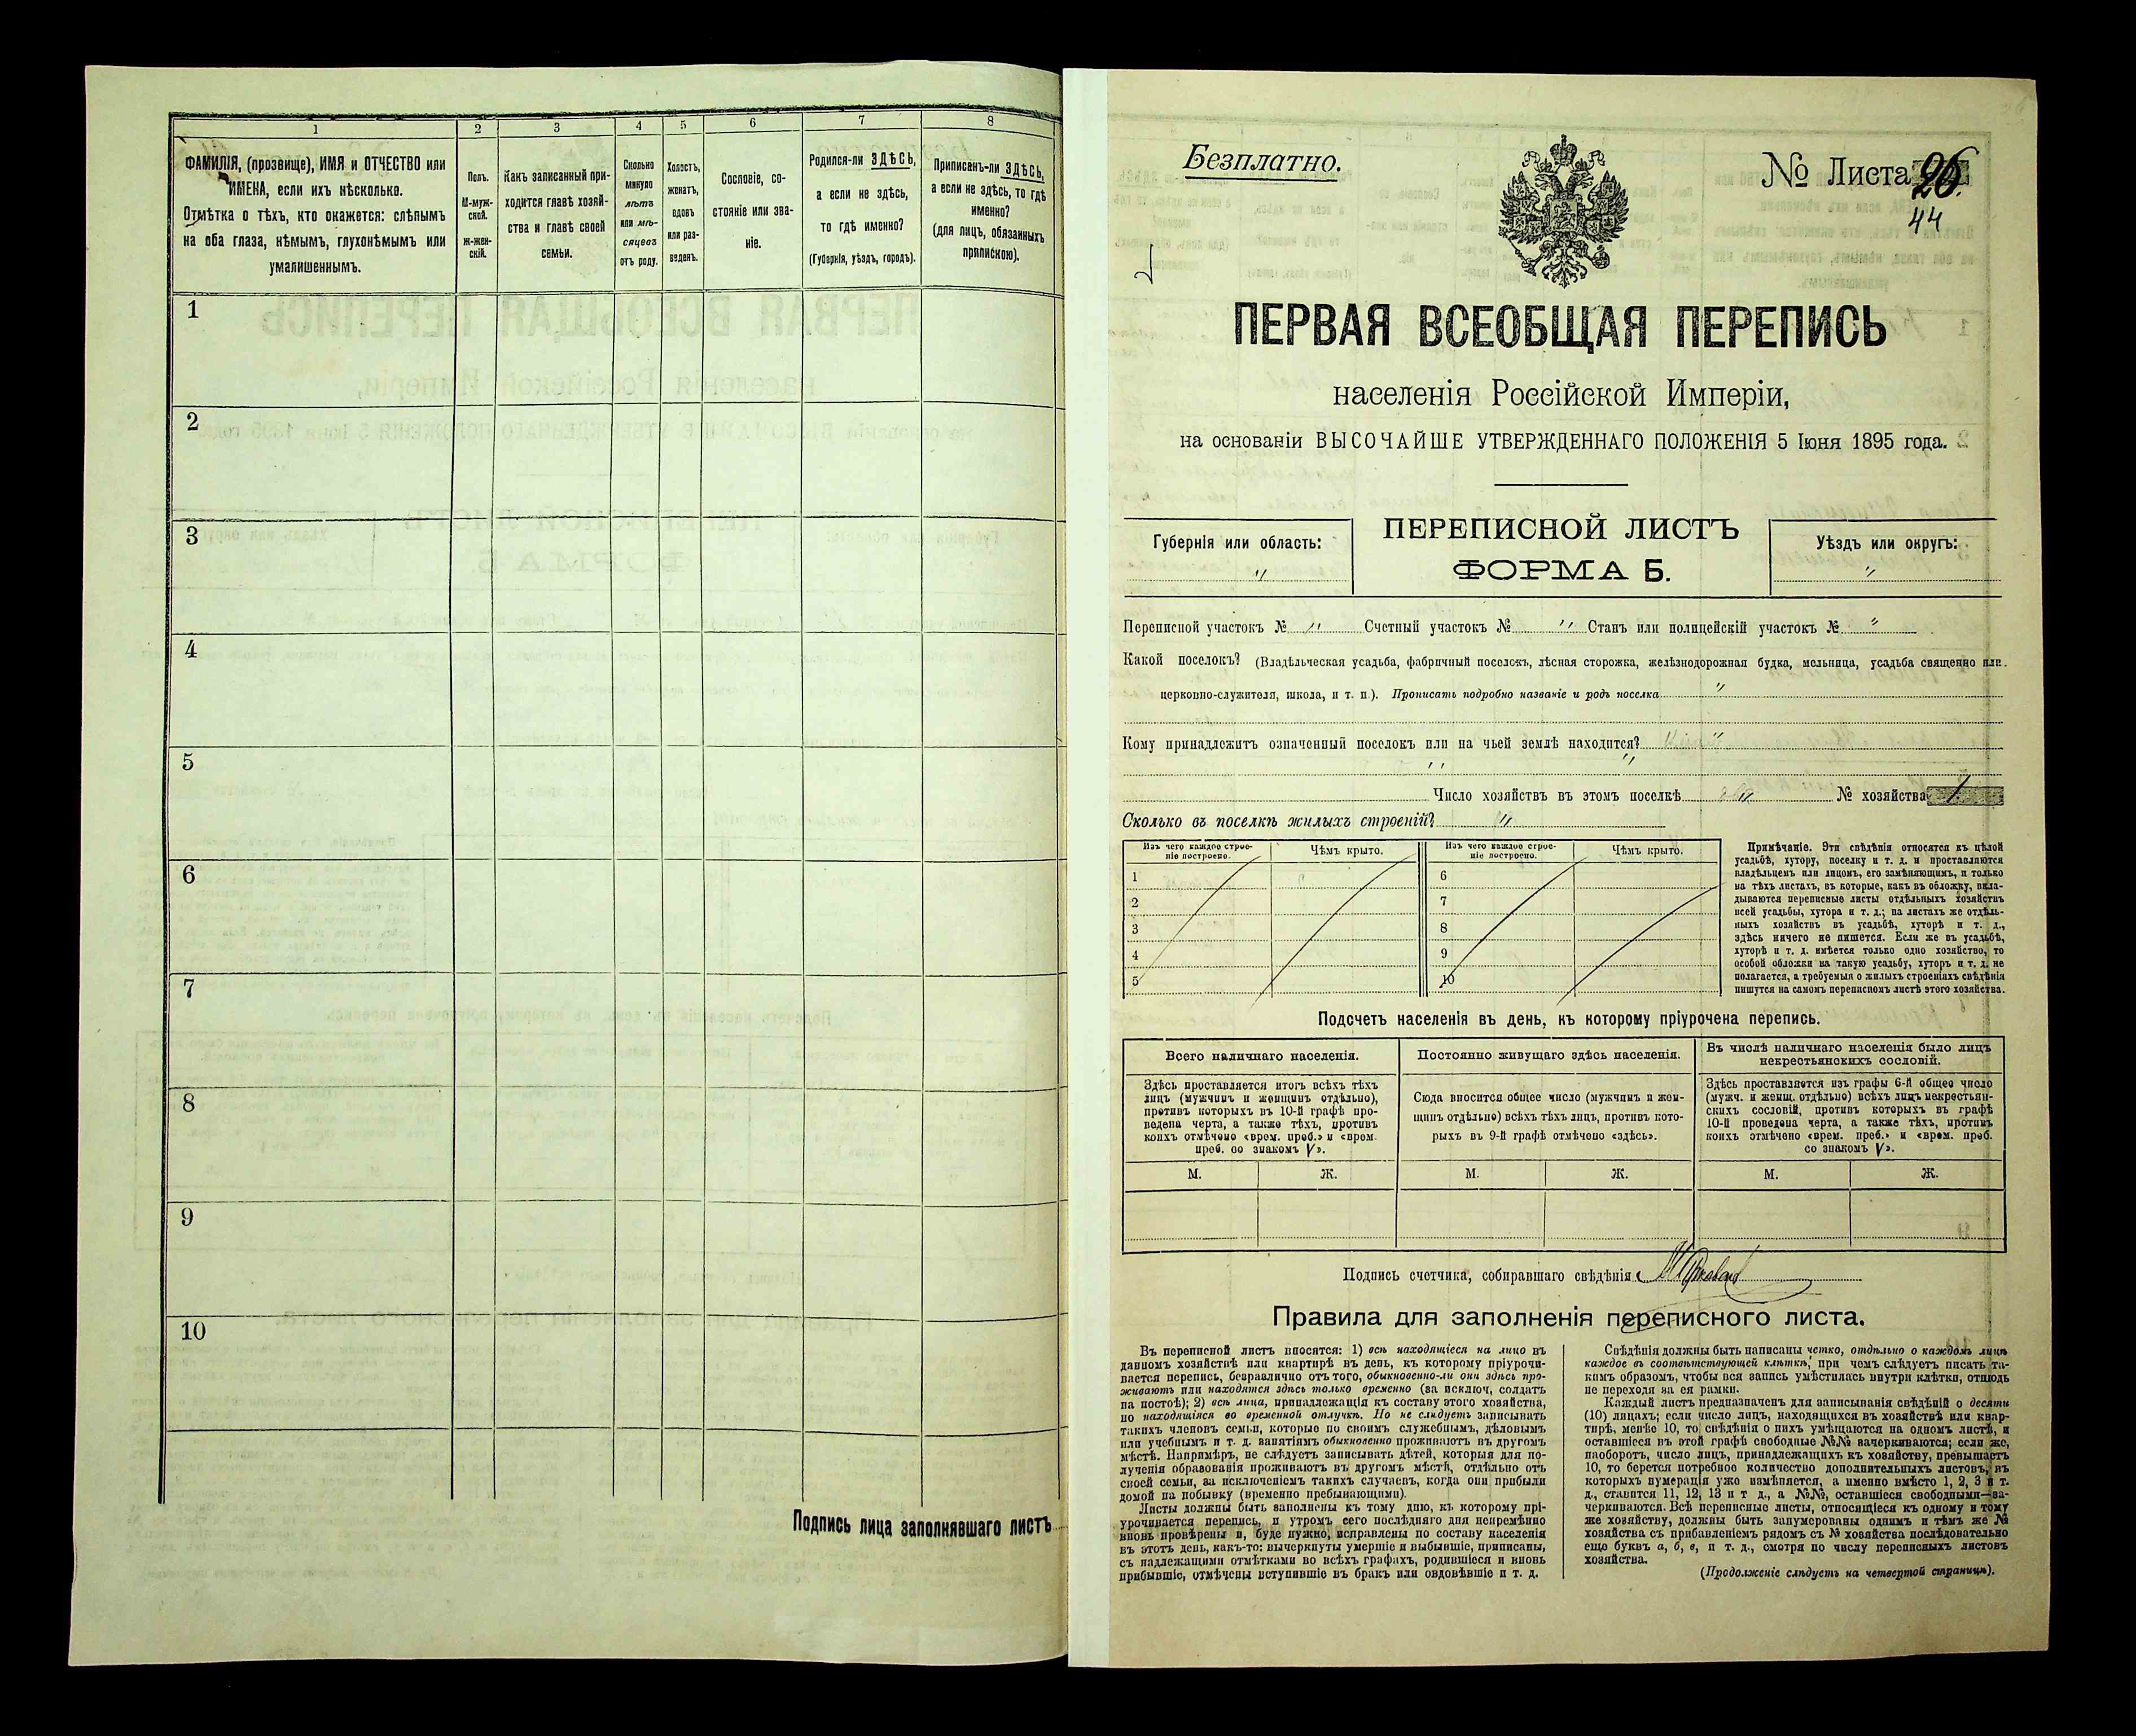 1 2 3 4 5 6 7 8
ФАМИЛІЯ, (прозвище), ИМЯ и ОТЧЕСТВО или
ИМЕНА, если ихъ нѣсколько.
Отмѣтка о тѣхъ, кто окажется: слѣпымъ
на оба глаза, нѣмымъ, глухонѣмымъ или
умалишеннымъ.
Полъ.
М-муж-
ской.
Ж-жен-
скій.
Какъ записанный при-
ходится главѣ хозяй-
ства и главѣ своей
семьи.
Сколько
минуло
лѣтъ
или мѣ-
сяцевъ
отъ роду.
Холостъ,
женатъ,
вдовъ
или раз-
веденъ.
Сословіе, со-
стояніе или зва-
ніе.
Родился-ли ЗДѢСЬ,
а если не здѣсь,
то гдѣ именно?
(Губернія, уѣздъ, городъ).
Приписанъ-ли ЗДѢСЬ,
а если не здѣсь, то гдѣ
именно?
(для лицъ, обязанныхъ
припискою).
1
2
3
4
5
6
7
8
9
10
Подпись лица заполнявшаго листъ
Безплатно.
№ Листа 26.
44
ПЕРВАЯ ВСЕОБЩАЯ ПЕРЕПИСЬ
населенія Россійской Имперіи,
на основаніи ВЫСОЧАЙШЕ УТВЕРЖДЕННАГО ПОЛОЖЕНІЯ 5 Іюня 1895 года.
Губернія или область:
"
ПЕРЕПИСНОЙ ЛИСТЪ
ФОРМА Б.
Уѣздъ или округъ:
"
Переписной участокъ № " Счетный участокъ № " Станъ или полицейскій участокъ № "
Какой поселокъ? (Владѣльческая усадьба, фабричный поселокъ, лѣсная сторожка, желѣзнодорожная будка, мельница, усадьба священно или
церковно-служителя, школа, и т. п.). Прописать подробно названіе и родъ поселка "
Кому принадлежитъ означенный поселокъ или на чьей землѣ находится? "
" "
Число хозяйствъ въ этомъ поселкѣ " № хозяйства 1.
Сколько въ поселкѣ жилыхъ строеній? "
Изъ чего каждое строе-
ніе построено.
Чѣмъ крыто.
Изъ чего каждое строе-
ніе построено.
Чѣмъ крыто.
1 6
2 7
3 8
4 9
5 10
Примѣчаніе. Эти свѣдѣнія относятся къ цѣлой
усадьбѣ, хутору, поселку и т. д. и проставляются
владѣльцемъ или лицомъ, его замѣняющимъ, и только
на тѣхъ листахъ, въ которые, какъ въ обложку, вкла-
дываются переписные листы отдѣльныхъ хозяйствъ
всей усадьбы, хутора и т. д.; на листахъ же отдѣль-
ныхъ хозяйствъ въ усадьбѣ, хуторѣ и т. д.,
здѣсь ничего не пишется. Если же въ усадьбѣ,
хуторѣ и т. д. имѣется только одно хозяйство, то
особой обложки на такую усадьбу, хуторъ и т. д. не
полагается, а требуемыя о жилыхъ строеніяхъ свѣдѣнія
пишутся на самомъ переписномъ листѣ этого хозяйства.
Подсчетъ населенія въ день, къ которому пріурочена перепись.
Всего наличнаго населенія.
Здѣсь проставляется итогъ всѣхъ тѣхъ
лицъ (мужчинъ и женщинъ отдѣльно),
противъ которыхъ въ 10-й графѣ про-
ведена черта, а также тѣхъ, противъ
коихъ отмѣчено «врем. преб.» и «врем.
преб. со знакомъ V».
Постоянно живущаго здѣсь населенія.
Сюда вносится общее число (мужчинъ и жен-
щинъ отдѣльно) всѣхъ тѣхъ лицъ, противъ кото-
рыхъ въ 9-й графѣ отмѣчено «здѣсь».
Въ числѣ наличнаго населенія было лицъ
некрестьянскихъ сословій.
Здѣсь проставляется изъ графы 6-й общее число
(мужч. и женщ. отдѣльно) всѣхъ лицъ некрестьян-
скихъ сословій, противъ которыхъ въ графѣ
10-й проведена черта, а также тѣхъ, противъ
коихъ отмѣчено «врем. преб.» и «врем. преб.
со знакомъ V».
М. Ж. М. Ж. М. Ж.
Подпись счетчика, собиравшаго свѣдѣнія
Правила для заполненія переписного листа.
Въ переписной листъ вносятся: 1) всѣ находящіеся на лицо въ
данномъ хозяйствѣ или квартирѣ въ день, къ которому пріурочи-
вается перепись, безразлично отъ того, обыкновенно-ли они здѣсь про-
живаютъ или находятся здѣсь только временно (за исключ. солдатъ
на постоѣ); 2) всѣ лица, принадлежащія къ составу этого хозяйства,
но находящіяся во временной отлучкѣ. Но не слѣдуетъ записывать
такихъ членовъ семьи, которые по своимъ служебнымъ, дѣловымъ
или учебнымъ и т. д. занятіямъ обыкновенно проживаютъ въ другомъ
мѣстѣ. Напримѣръ, не слѣдуетъ записывать дѣтей, которыя для по-
лученія образованія проживаютъ въ другомъ мѣстѣ, отдѣльно отъ
своей семьи, за исключеніемъ такихъ случаевъ, когда они прибыли
домой на побывку (временно пребывающими).
Листы должны быть заполнены къ тому дню, къ которому прі-
урочивается перепись, и утромъ сего послѣдняго дня непремѣнно
вновь провѣрены и, буде нужно, исправлены по составу населенія
въ этотъ день, какъ-то: вычеркнуты умершіе и выбывшіе, приписаны,
съ надлежащими отмѣтками во всѣхъ графахъ, родившіеся и вновь
прибывшіе, отмѣчены вступившіе въ бракъ или овдовѣвшіе и т. д.
Свѣдѣнія должны быть написаны четко, отдѣльно о каждомъ лицѣ
каждое въ соотвѣтствующей клѣткѣ, при чемъ слѣдуетъ писать та-
кимъ образомъ, чтобы вся запись умѣстилась внутри клѣтки, отнюдь
не переходя за ея рамки.
Каждый листъ предназначенъ для записыванія свѣдѣній о десяти
(10) лицахъ; если число лицъ, находящихся въ хозяйствѣ или квар-
тирѣ, менѣе 10, то свѣдѣнія о нихъ умѣщаются на одномъ листѣ, и
оставшіеся въ этой графѣ свободные №№ зачеркиваются; если же,
наоборотъ, число лицъ, принадлежащихъ къ хозяйству, превышаетъ
10, то берется потребное количество дополнительныхъ листовъ, въ
которыхъ нумерація уже измѣняется, а именно вмѣсто 1, 2, 3 и т.
д., ставится 11, 12, 13 и т д., а №№, оставшіеся свободными—за-
черкиваются. Всѣ переписные листы, относящіеся къ одному и тому
же хозяйству, должны быть занумерованы однимъ и тѣмъ же №
хозяйства съ прибавленіемъ рядомъ съ № хозяйства послѣдовательно
еще буквъ а, б, в, и т. д., смотря по числу переписныхъ листовъ
хозяйства.
(Продолженіе слѣдуетъ на четвертой страницѣ).